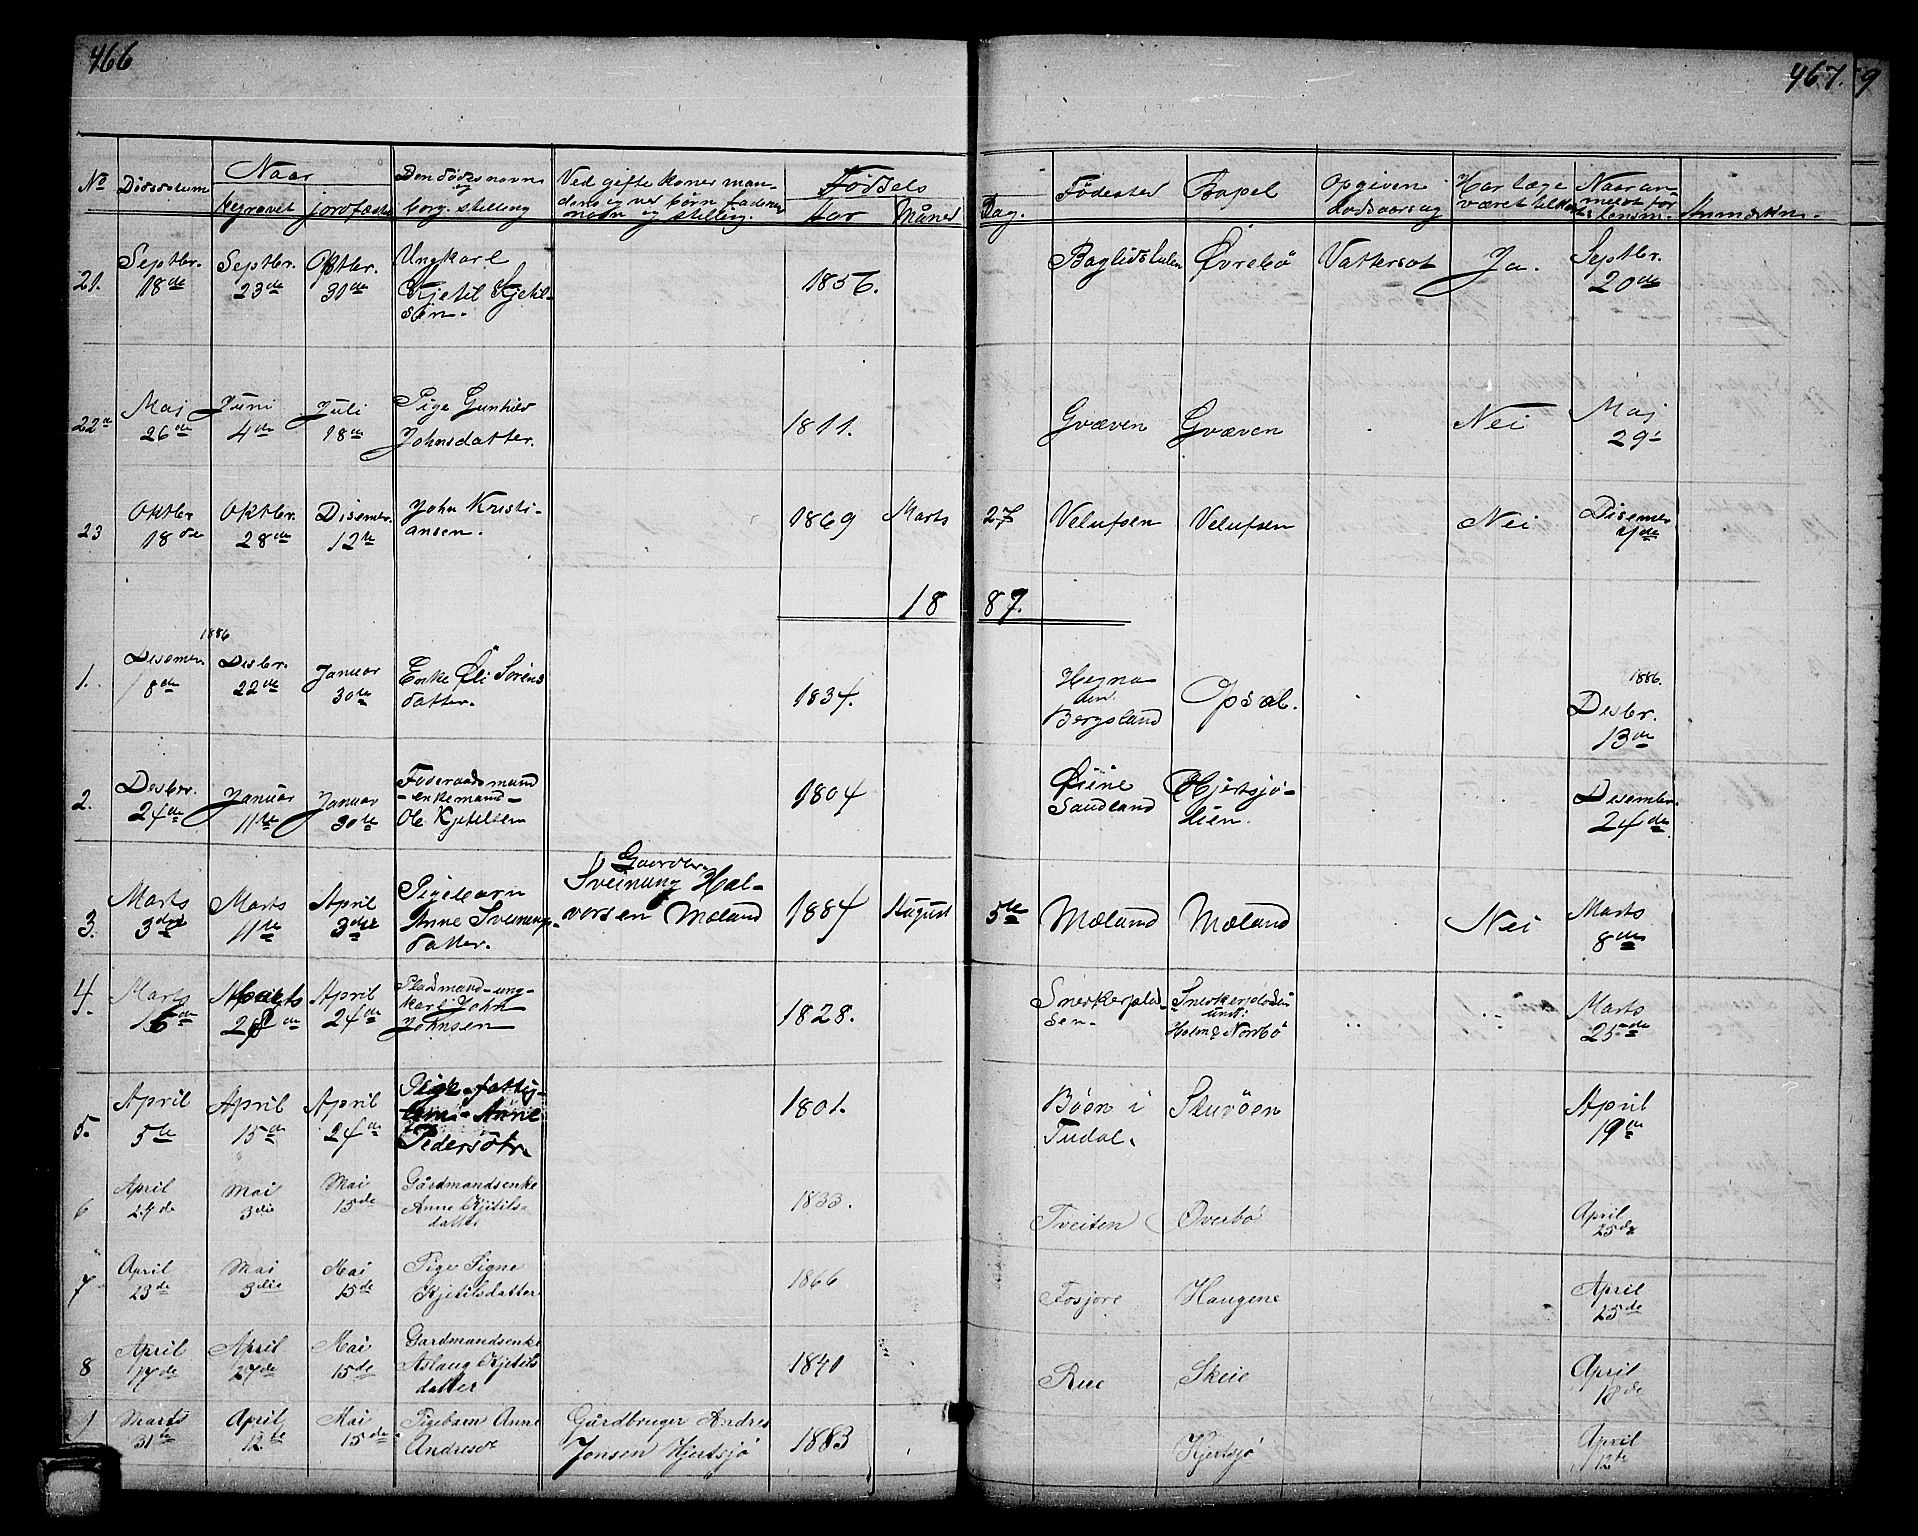 466
467.
9
No
Naar
Den dødes navn
Ved gifte koner man-
Fødsels
og
begravet
jordfæstet
borg. stilling
navn og stilling.
Aar
Maaned
Dag.
Fødested
Bopel
Opgiven
dødsaarsag
Har læge
været tilkaldt
Naar an-
meldt for
lensm.
21.
Septbr.
18de
Septbr.
23de
Oktbr.
31de
Ungkarl
Kjetil Kjetil-
sen.
1856.
Øvrebø
Vattersot
Ja.
Septbr.
20de
22de
Maj
26de
Juni
4de
Juli
18de
Pige Gunhild
Johnsdatter.
1811.
Gvæven
Gvæven
Nei
Maj
29-
23
Oktbr
18de
Oktbr.
28de
Disember.
12te
John Kristi-
ansen.
1869
Marts
27
Velufsen
Velufsen
Nei
Disember
1887.
1.
Disember
18de
1886
Desbr.
22de
Januar
30te
Enke Øli Sørens
datter.
1834.
Hegna
Bergsland
Opsal.
1886.
Desbr.
13de
2.
Desbr.
24de
Januar
11te
Januar
30te
Føderaadsmand
-enkemand-
Ole Kjetilsen
1804
Øiine
Sandland
Hjertsjø-
lien.
Desember.
24de
3.
Marts
3die
Marts
11te
April
3die
Pigebarn
Anne Sveinungs-
datter.
Gaardbr.
Sveinung Hal-
vorsen Mæland
1884
August
5te
Mæland
Mæland
Nei
Marts
8de
4.
Marts
16de
Marts
28de
April
24de
Pladsmand-ung-
karl John
Johnsen
1828.
Snekkerplad-
sen-
Snekkerpladsen
und:
Holm & Nordbø
Marts
25de
5.
April
5te
April
15de
April
24de
Pige-fattig-
lem- Anne
Pedersdtr.
1801.
Bøen i
Tudal.
Sturøen
April
19de
6
April
24de
Mai
3die
Mai
15de
Gårdmandsenke
Anne Kjetils-
datter
1833.
Tveiten
Øverbø
April
25de
7
April
23de
Mai
3die
Mai
15de
Pige Signe
Kjetilsdatter
1866
Fosjore
Haugene
April
25de
8
April
17de
April
27de
Mai
15de
Gårdmandsenke
Aslaug Kjetils
datter
1841
Rue
Skeie
April
18de
9
Marts
31te
April
12te
Mai
15de
Pigebarn Anne
Andresdr
Gårdbruger Andres
Jonsen Hjertsjø
1883
Hjertsjø
April
12te